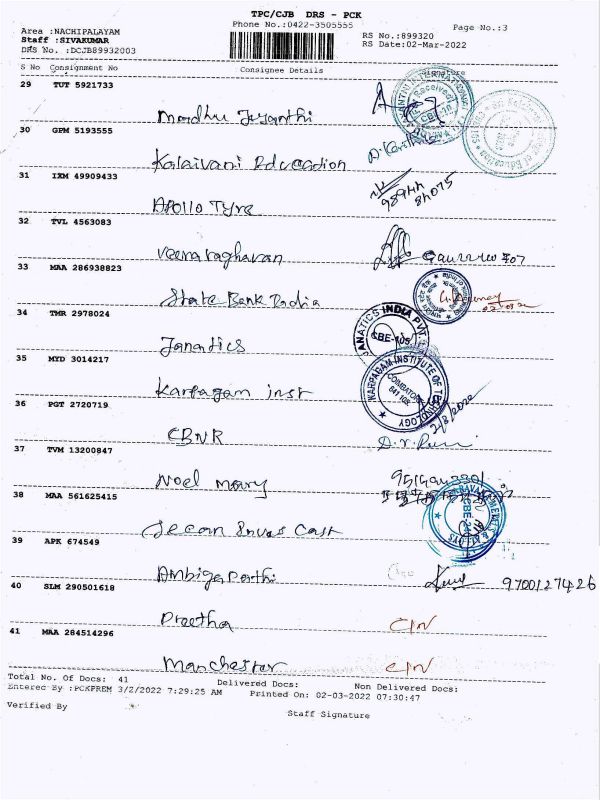 TPC/CJB DRS - PCK
Phone No.:0422-3505555
Page No.:3
Area :NACHIPALAYAM
Staff :SIVAKUMAR
DRS No. :DCJB89932003
RS No.:899320
RS Date:02-Mar-2022
S No Consignment No Consignee Details Signature
29 TUT 5921733
Madhu Jeyanthi
30 GPM 5193555
Kalaivani Education
31 IXM 49909433
98944
48075
Apollo Tyre
32 TVL 4563083
Veeraraghavan
33 MAA 286938823
State Bank India
34 TMR 2978024
JANATICS INDIA PVT
CBE-105
Janatics
35 MYD 3014217
KARPAGAM INSTITUTE OF TECHNOLOGY
COIMBATORE
641 105
Karpagam inst
36 PGT 2720719
CBNR
37 TVM 13200847
Noel mary
38 MAA 561625415
Cast
39 APK 674549
Ambiga Parthi
9700127426
40 SLM 290501618
Preetha
C/N
41 MAA 284514296
Manchester
C/N
Total No. of Docs: 41 Delivered Docs: Non Delivered Docs:
Entered By :PCKPREM 3/2/2022 7:29:25 AM Printed On: 02-03-2022 07:30:47
Verified By
Staff Signature